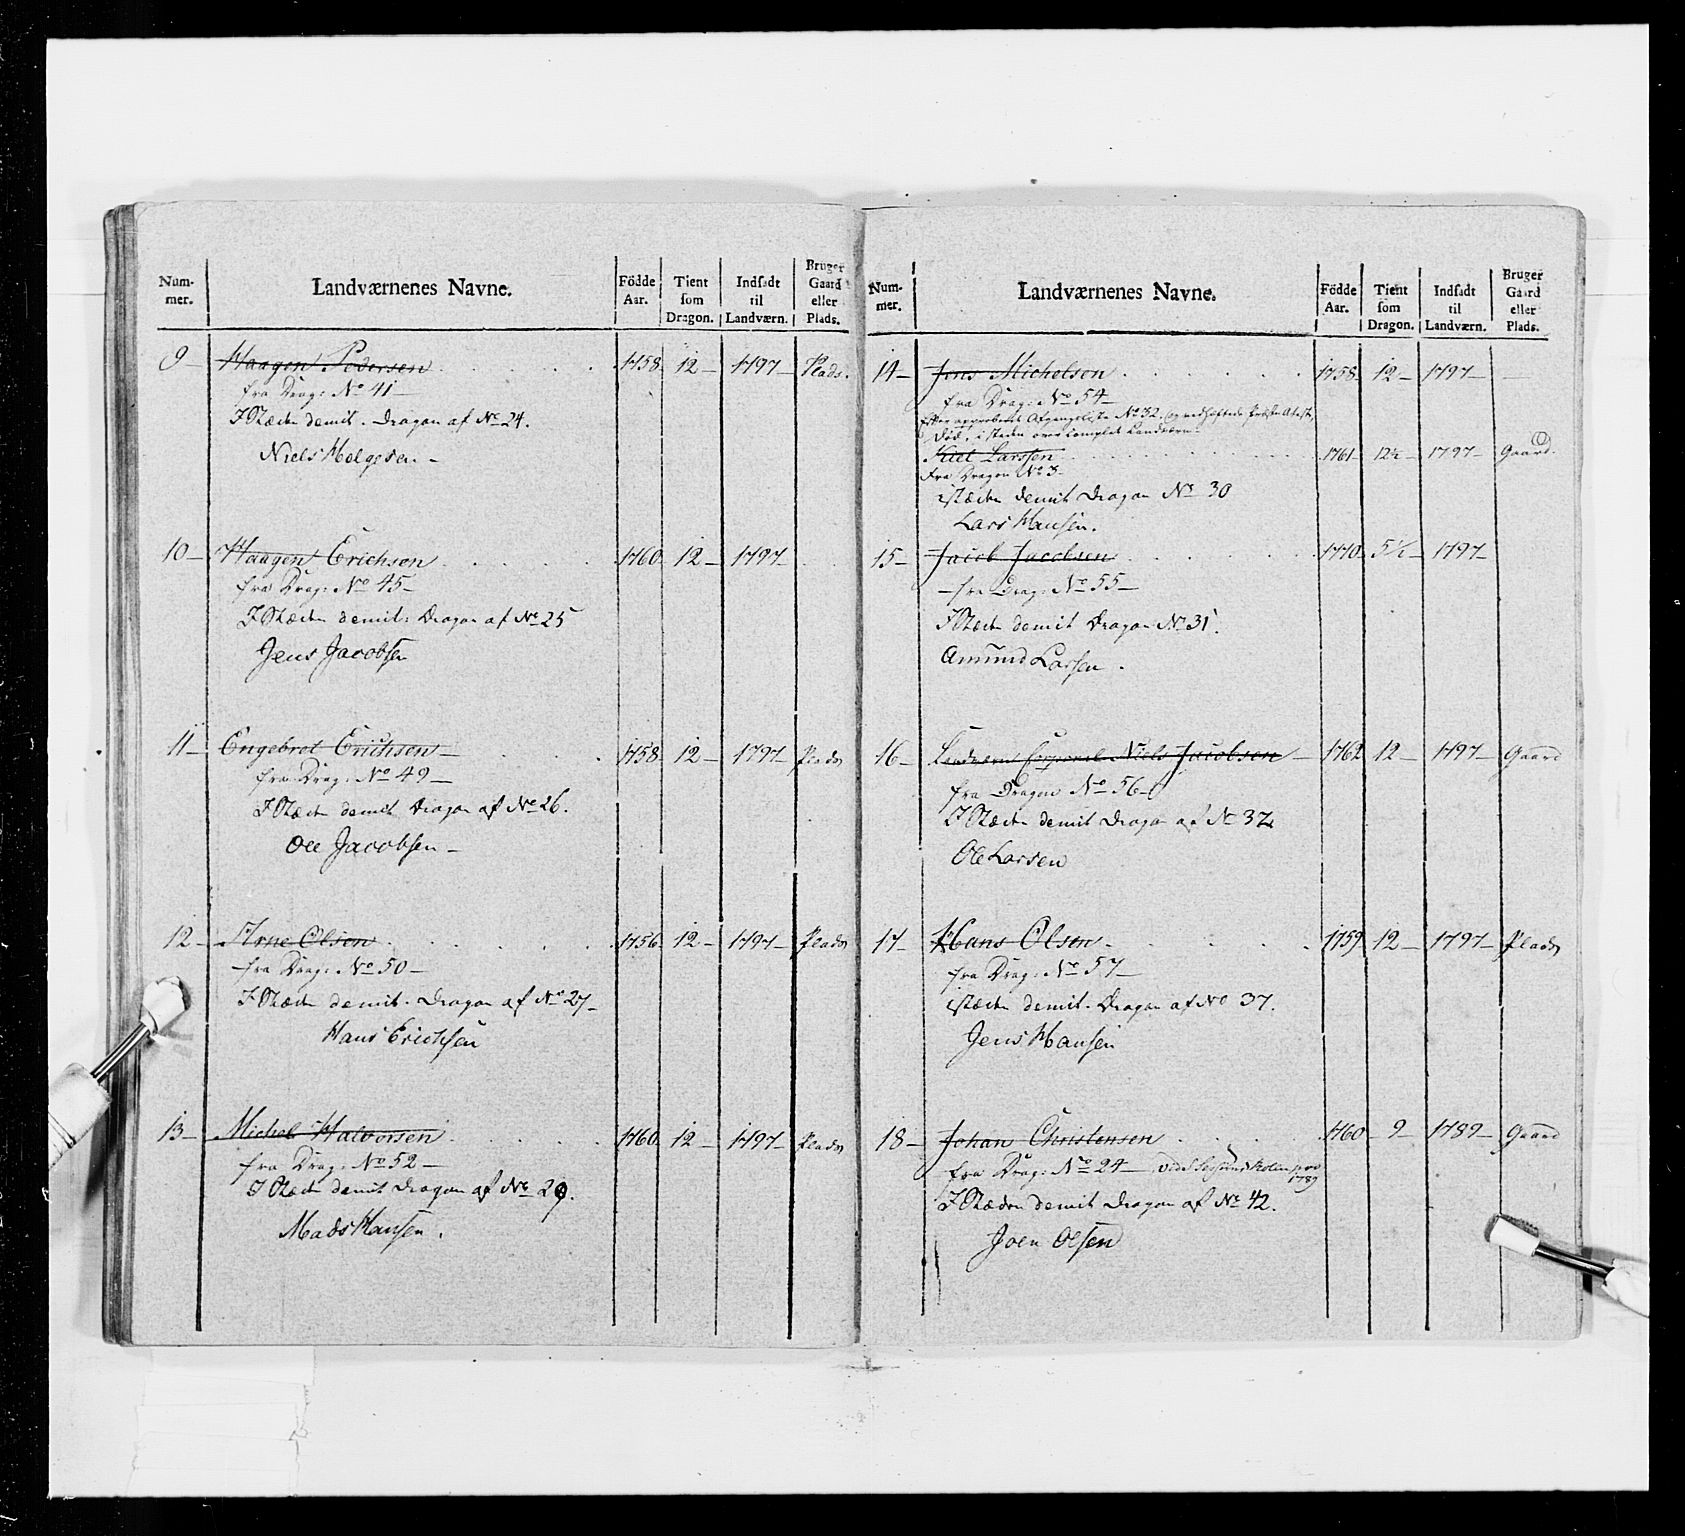 Num-
mer.
Landværnenes Navne.
Födde
Aar.
Tient
som
Dragon.
Indsadt
til
Landværn.
Bruger
Gaard
eller
Plads.
9 — Haagen Pedersen 1758 12 — 1797 Plads.
fra Drag: No 41 —
I Stæden demit. Dragon af No 24.
Niels Holgesen. —
10 — Haagen Erichsen 1760 12 — 1797
fra Drag: No 45 —
I Stæden demit: Dragon af No 25
Jens Jacobsen
11 — Engebret Erichsen — 1758 12 — 1797 Plads
fra Drag: No 49 —
I Stæden demit Dragon af No 26.
Ole Jacobsen —
12 — Arne Olsen 1756 12 — 1797 — Plads
fra Drag: No 50 —
I Stæden demit. Dragon af No 27 —
Hans Erichsen
13 — Michel Halvorsen 1760 12 — 1797 — Plads
fra Drag: No 52 —
I Stæden demit Dragon af No 29.
Mads Hansen.
Num-
mer.
Landværnenes Navne.
Födde
Aar.
Tient
som
Dragon.
Indsadt
til
Landværn.
Bruger
Gaard
eller
Plads.
14 — Jens Michelsen 1758 12 — 1797 —
fra Drag: No 54 —
Efter approberet Afgangsliste No 32, og vedheftede Præste Atest,
död, i steden over complet Landværn:
Larssen 1761 12½ 1797 — Gaard.
Fra Dragon No 3
istæden demit Dragon No 30
Lars Hansen.
15 — Jacob Jacobsen 1770 5½ — 1797
fra Drag: No 55 —
I Stæden demit Dragon No 31.
Amund Larsen.
16 — Landværns Corporal Niels Jacobsen — 1762 12 — 1797 — Gaard
fra Dragon No 56 —
I Stæden demit Dragon af No 32
Ole Larsen
17 — Hans Olsen 1759 12 — 1797 — Plads
fra Drag: No 57 —
istæden demit. Dragon af No 37.
Jens Hansen
18 — Johan Christensen 1760 — 9 — 1789 — Gaard
fra Drag: No 24 — pro
1789
I Stæden demit Dragon af No 42.
Joen Olsen